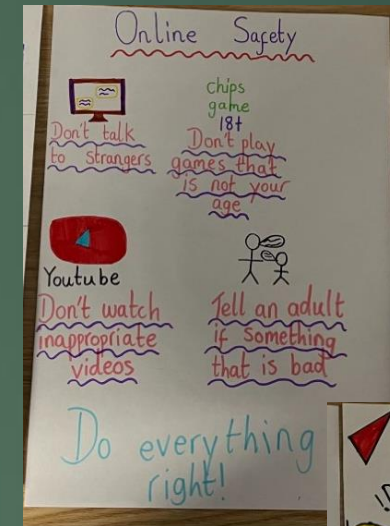 Online Safety
Don't talk
to strangers
chips
game
18+
Don't play
games that
is not your
age
Youtube
Don't watch
inappropriate
videos
Tell an adult
if something
that is bad
Do everything
right!